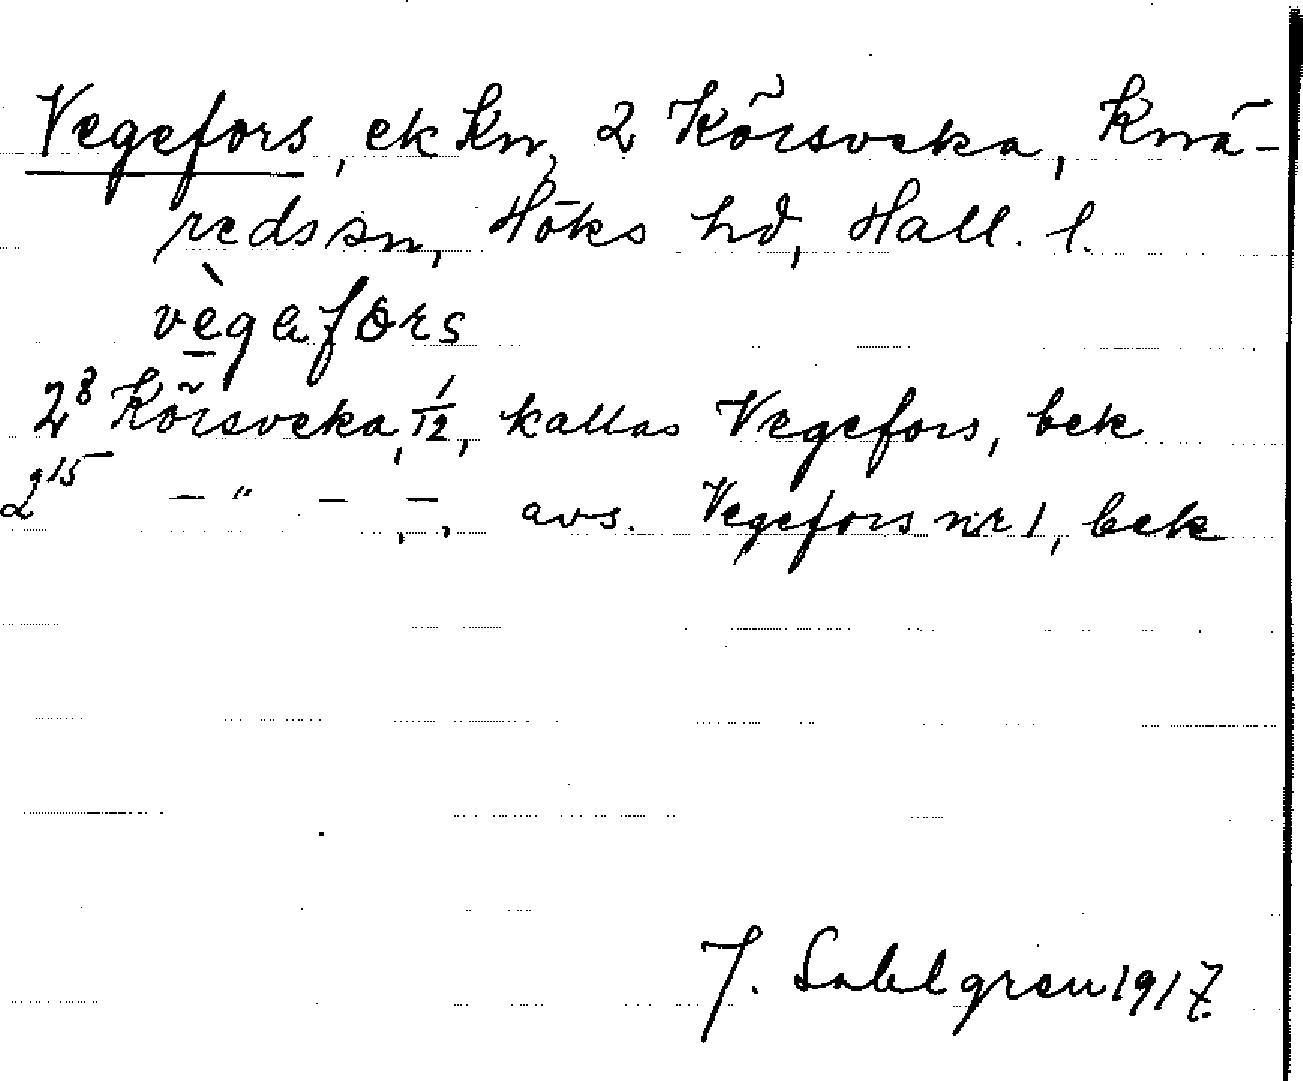 Vegefors, ek Kn, 2 Körsveka, Knä-
reds sn, Höks hd, Hall. l.
vègafors
2⁸ Körsveka, 1/12, kallas Vegefors, bek
2¹⁵ – " – , – , avs. Vegefors nr 1, bek
J. Sahlgren 1917.